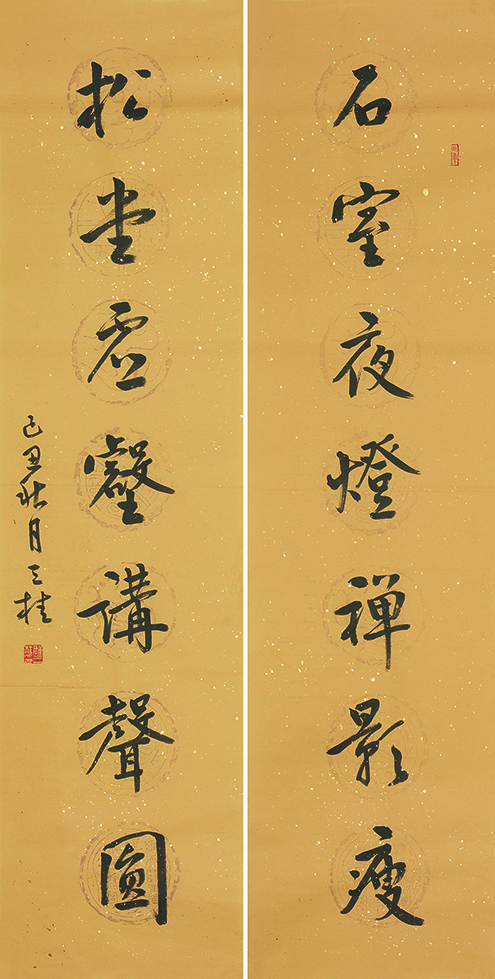 石室夜燈禪影瘦
松堂虛壑講聲圓
己丑秋月三桂